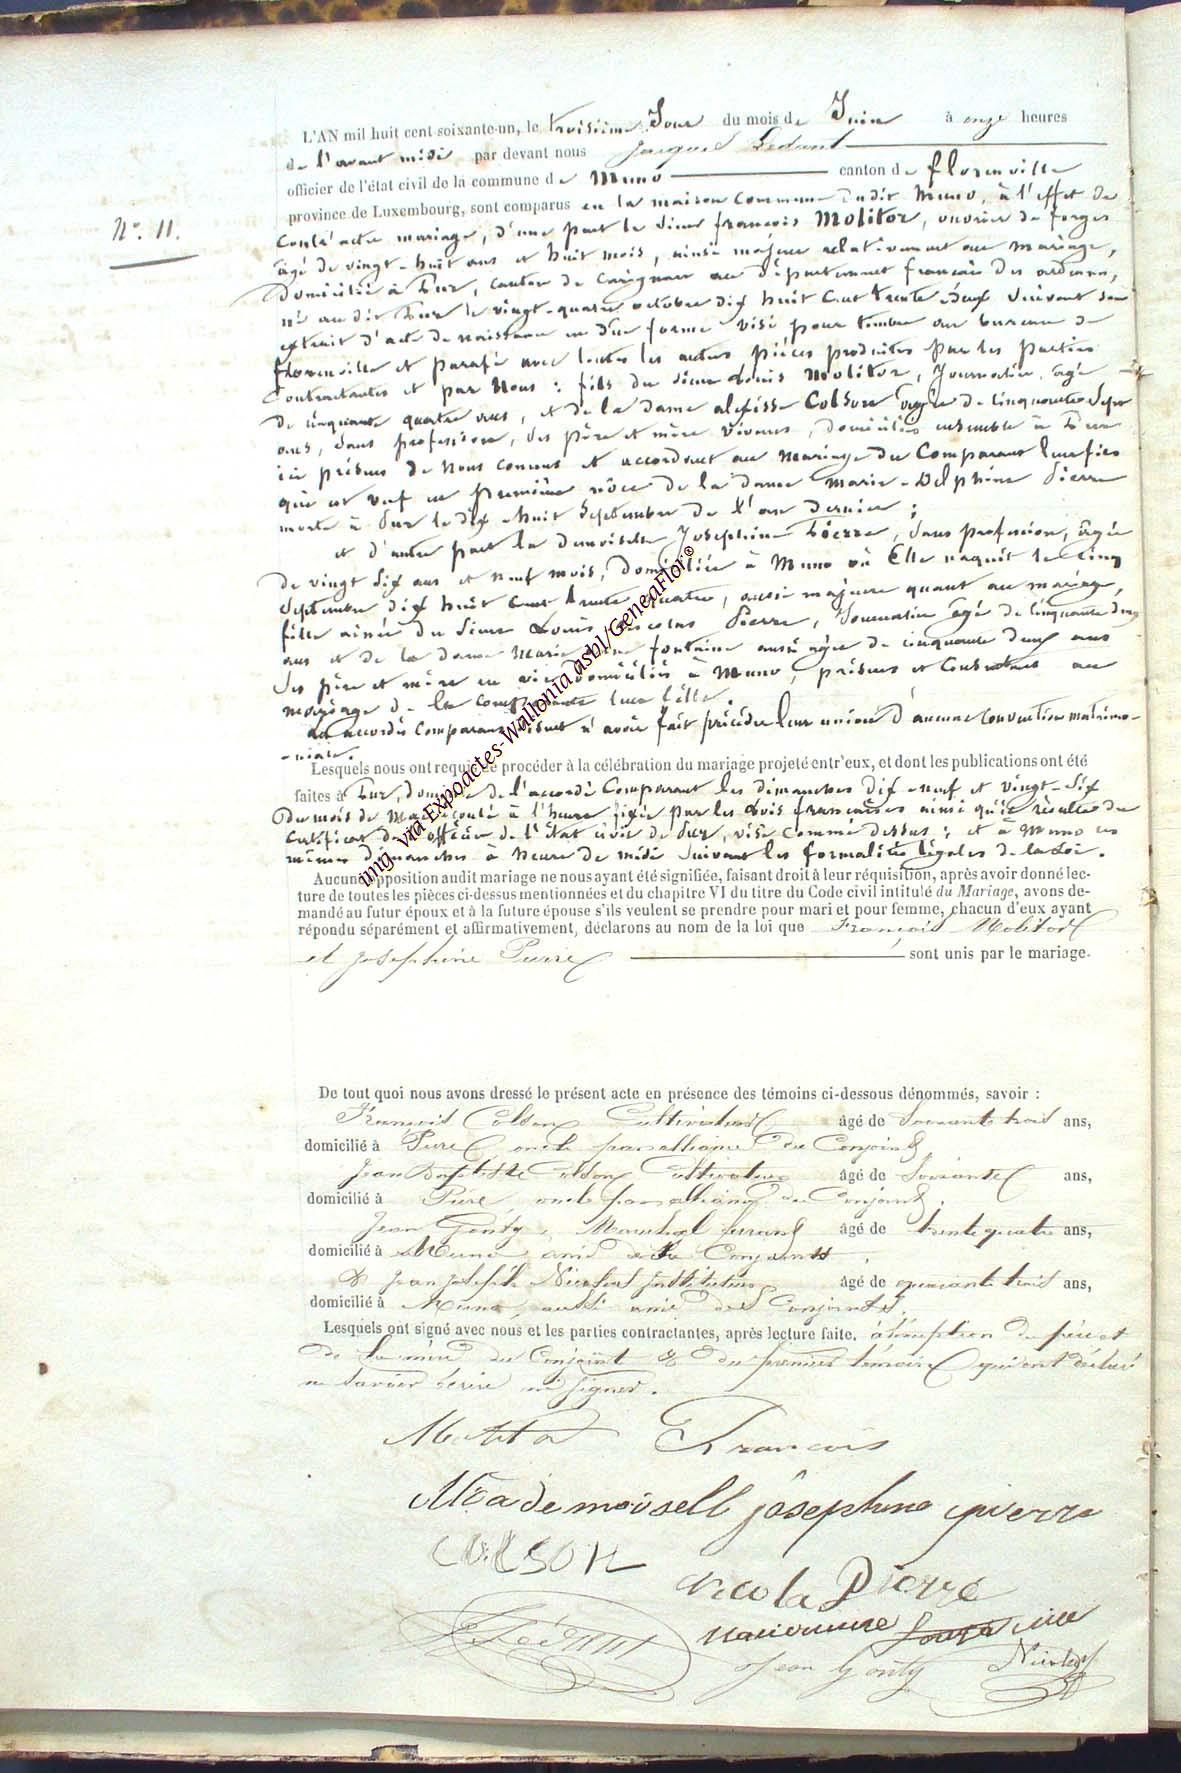 L'AN mil huit cent soixante-un, le troisième Jour du mois de Juin à onze heures
de l'avant midi par devant nous Jacques Ledant
officier de l'état civil de la commune de Muno canton de florenville
province de Luxembourg, sont comparus en la maison Commune dudit Muno, à l'effet de
N° 11.
mariage, d'une part le Sieur françois Molitor, ouvrier de forges
âgé de vingt-huit ans et huit mois, ainsi majeur relativement au mariage,
Domicilié à Pur, canton de Carignan au département français des ardennes,
né au dit Pur le vingt-quatre octobre dix huit Cent trente deux suivant son
extrait d'acte de naissance en due forme visé pour timbre au bureau de
florenville et parafé avec toutes les autres pièces produites par les parties
Contractantes et par Nous : fils du sieur Louis Molitor, Journalier, âgé
de cinquante quatre ans, et de la dame Colson âgée de cinquante Sept
ans, sans profession, ses père et mère vivans, domiciliés ensemble à Pur
ici présens de Nous connus et accordant au Mariage du Comparant leur fils
qui est veuf en première nôce de la dame Marie-Delphine Pierre
morte à Pur le dix-huit Septembre de l'an dernier ;
et d'autre part la demoiselle Josephine Pierre, sans profession, âgée
De vingt six ans et neuf mois, Domiciliée à Muno où Elle naquit le Cinq
Septembre dix huit Cent trente quatre, aussi majeure quant au mariage,
fille ainée du Sieur Louis Nicolas Pierre, Journalier âgé de Cinquante deux
ans et de la dame Marie fontaine aussi âgée de cinquante deux ans
Ses père et mère en vie domiciliés à Muno, présens et Consentans au
mariage de la Comparante leur fille.
Les accordés Comparans disent n'avoir fait précéder leur union d'aucune Convention matrimo-
-niale.
Lesquels nous ont requis de procéder à la célébration du mariage projeté entr'eux, et dont les publications ont été
faites à Pur, domicile de l'accordé Comparant les dimanches dix-neuf et vingt-six
du mois de Mai écoulé à l'heure fixée par les Lois françaises ainsi qu'il résulte du
Certificat de l'officier de l'état civil de Pur, visé comme dessus ; et à Muno les
mêmes dimanches à heure de midi suivant les formalités légales de la Loi.
Aucune opposition audit mariage ne nous ayant été signifiée, faisant droit à leur réquisition, après avoir donné lec-
ture de toutes les pièces ci-dessus mentionnées et du chapitre VI du titre du Code civil intitulé du Mariage, avons de-
mandé au futur époux et à la future épouse s'ils veulent se prendre pour mari et pour femme, chacun d'eux ayant
répondu séparément et affirmativement, déclarons au nom de la loi que François Molitor
et Josephine Pierre sont unis par le mariage.
De tout quoi nous avons dressé le présent acte en présence des témoins ci-dessous dénommés, savoir :
François Colson Cultivateur âgé de Soixante trois ans,
domicilié à Pure oncle par alliance du Conjoint,
Jean Baptiste Colson Cultivateur âgé de Soixante ans,
domicilié à Pure, oncle par alliance du Conjoint,
Jean Gonty, Maréchal ferrant âgé de trente quatre ans,
domicilié à Muno ami des Conjoints,
& Jean Joseph Nicolas Instituteur âgé de quarante trois ans,
domicilié à Muno, aussi ami des Conjoints.
Lesquels ont signé avec nous et les parties contractantes, après lecture faite, à l'exception du père et
de la mère du Conjoint & du premier témoin qui ont déclaré
ne savoir écrire ni signer.
Molitor François
Mademoisell josephine pierre
COLSON
Nicola Pierre
JLédant
Jean Gonty Nicolas
img. via Expoactes-Wallonia asbl/GeneaFlor©